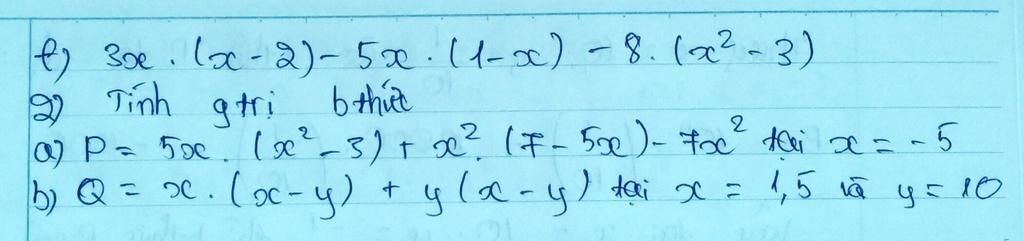 f) 3x . (x - 2) - 5x . (1 - x) - 8 . (x² - 3)
2) Tính gtrị bthức
a) P = 5x . (x² - 3) + x² . (7 - 5x) - 7x² tại x = - 5
b) Q = x . (x - y) + y (x - y) tại x = 1,5 và y = 10